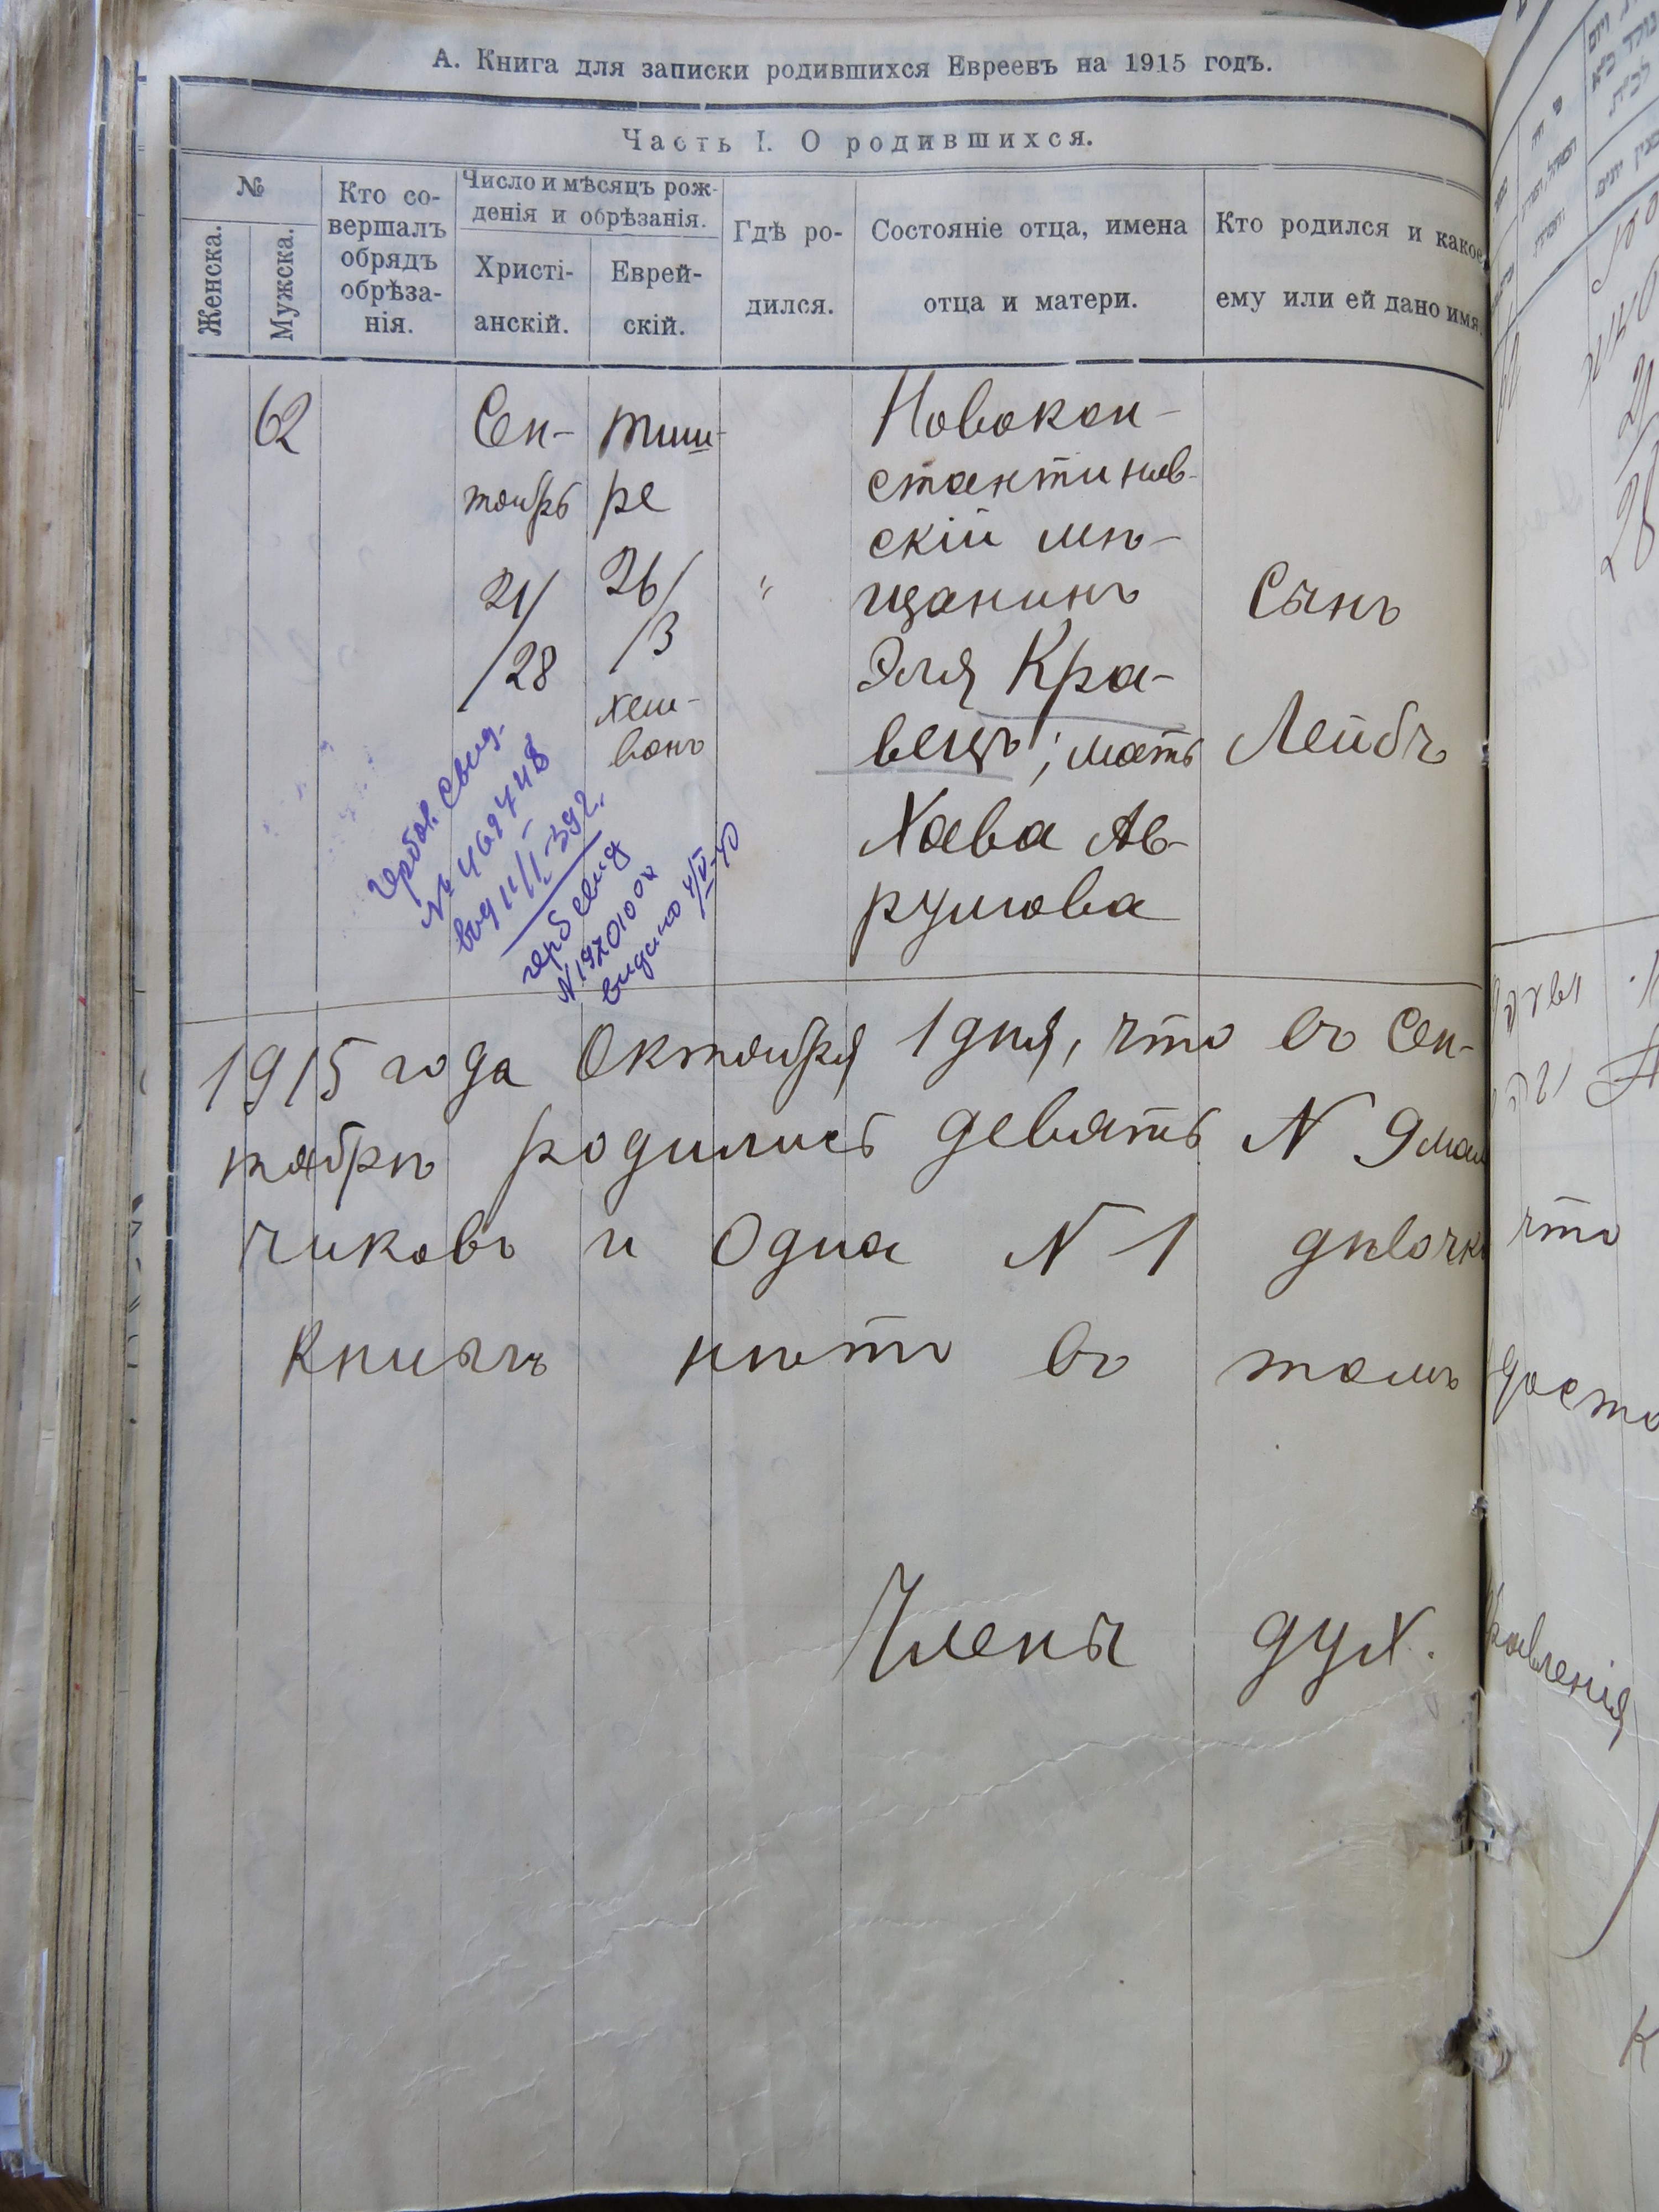 А. Книга для записки родившихся Евреевъ на 1915 годъ.
Часть I. О родившихся.
№
Женска.
Мужска.
Кто со-
вершалъ
обрядъ
обрѣза-
нія.
Число и мѣсяцъ рож-
денія и обрѣзанія.
Христі-
анскій.
Еврей-
скій.
Гдѣ ро-
дился.
Состояніе отца, имена
отца и матери.
Кто родился и какое
ему или ей дано имя.
62
Сен-
тябрь
21/
/28
тиш-
ре
26/
/3
хеш-
ванъ
"
Новокон-
стантинов-
скій мѣ-
щанинъ
Эля Кра-
вецъ; мать
Хава Ав-
румова
Сынъ
Лейбъ
Гербов. Свид.
№ 469748
выд 11/I-39г.
герб свид
видано 4/IV-40
1915 года Октября 1 дня, что въ Сен-
тябрѣ родились девять N 9 маль
чиковъ и одна N 1 дѣвочка что
Книгъ нѣтъ въ томъ
Члены дух. правленія